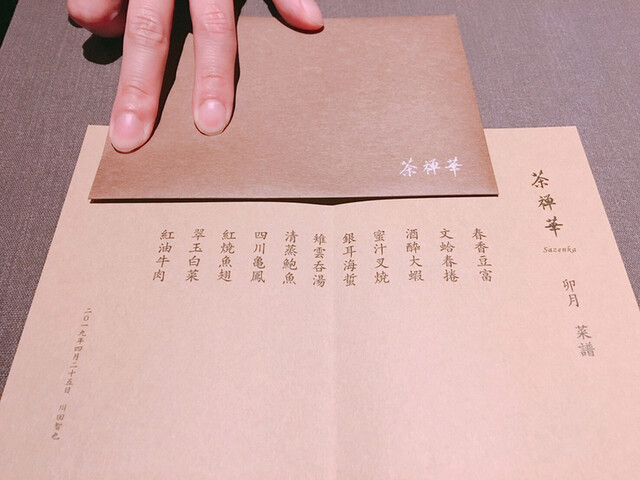 茶禅華
茶禅華
Sazenka
卯月 菜譜
春香豆富
文蛤春捲
酒醉大蝦
蜜汁叉焼
銀耳海蜇
雉雲呑湯
清蒸鮑魚
四川亀鳳
紅焼魚翅
翠玉白菜
紅油牛肉
二〇一九年四月二十五日 川田智也